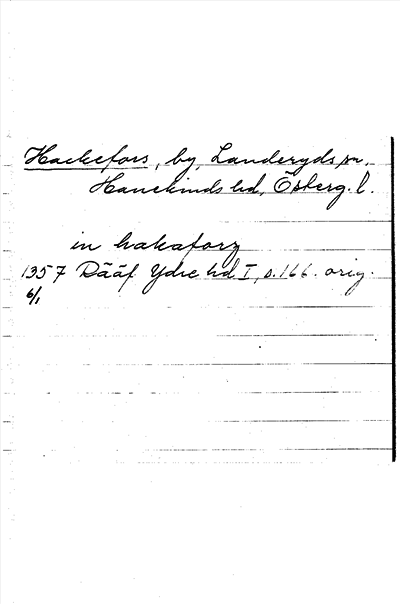 Hackefors, by, Landeryds sn,
Hanekinds hd, Österg. l.
in hakaforz
1357 Rääf Ydre hd I, s. 166. orig.
6/1